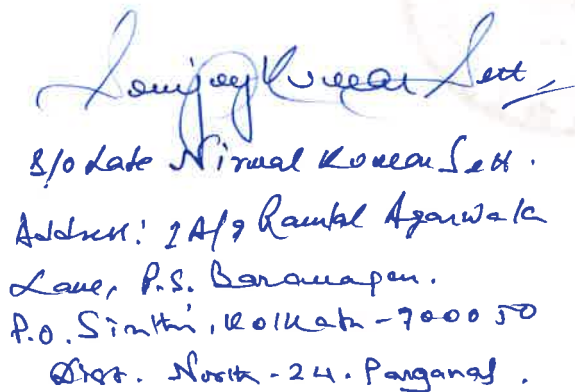 Sanjay Kumar Sett
S/o Late Nirmal Kumar Sett.
Address: 2A/9 Ramlal Agarwala
Lane, P.S. Baranagar.
P.O. Sinthi, Kolkata - 700050
Dist. North - 24. Parganas.